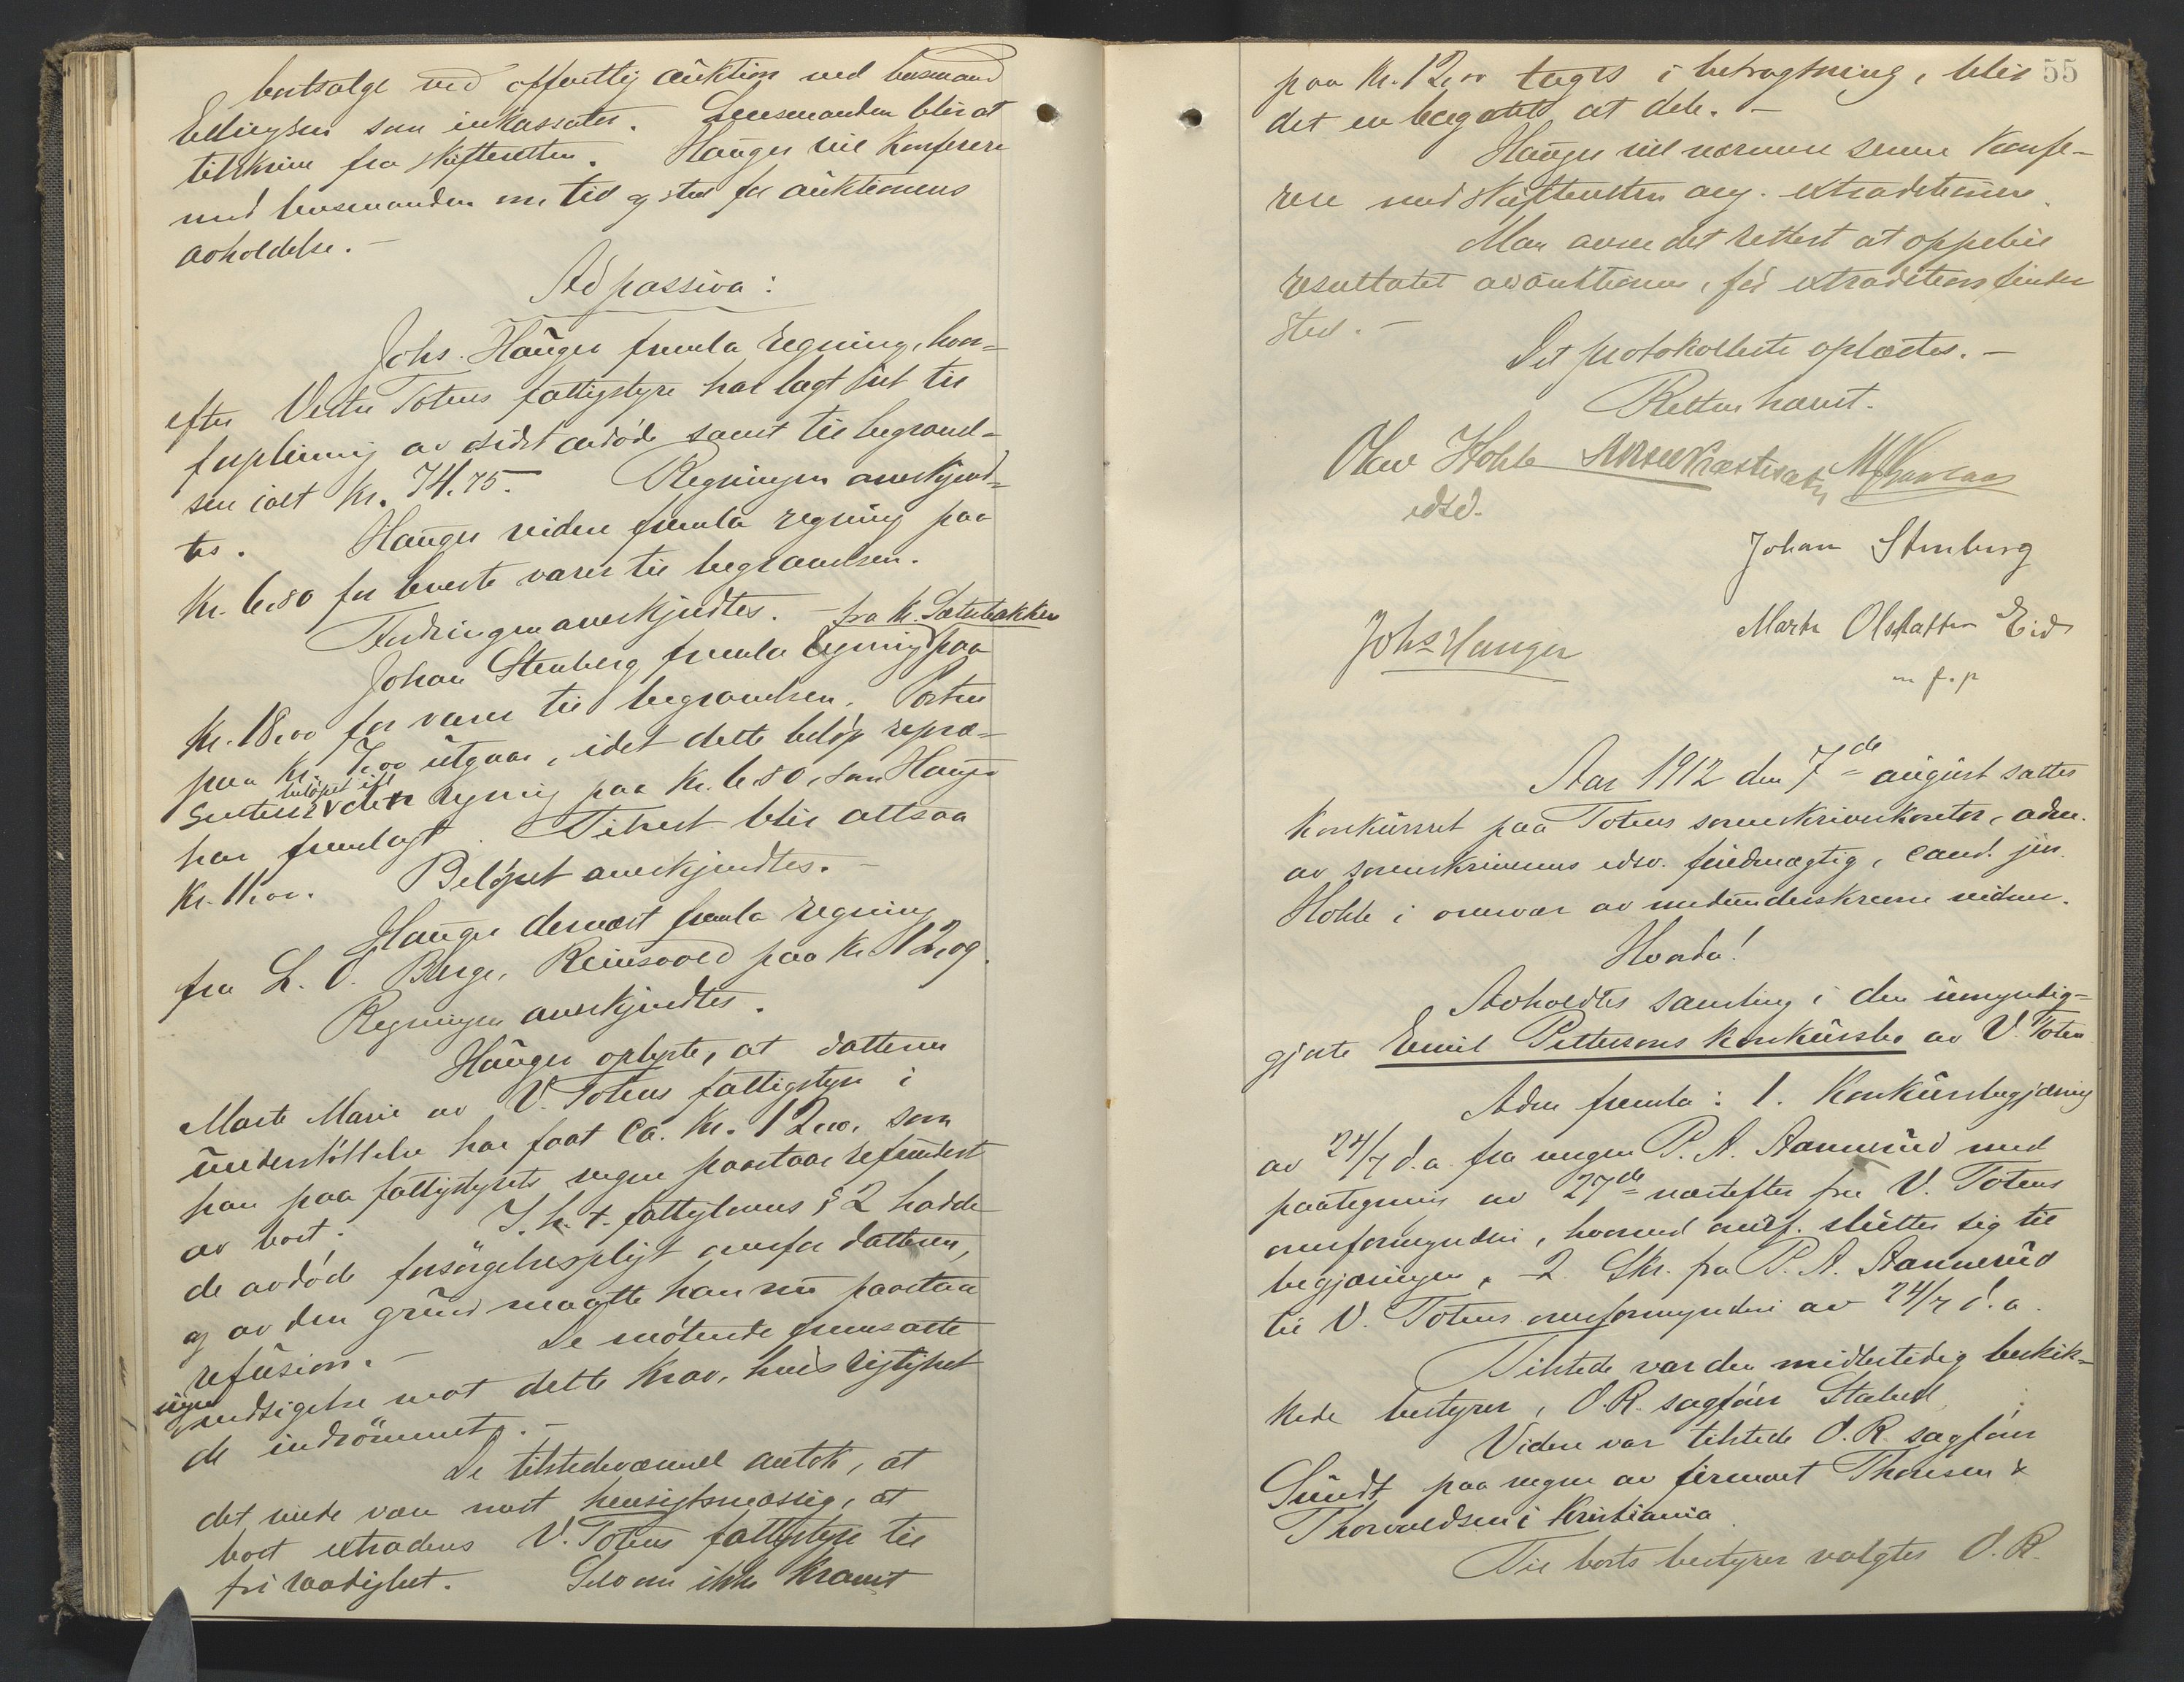 bortsælge ved offentlig auktion ved lensmand
Ellingsen som inkassator. Lensmanden blir at
tilskrive fra skifteretten. Hauger vil konferere
med lensmanden om tid og sted for auktionens
avholdelse. -
Ad passiva:
Johs. Hauger fremla regning, hvor-
efter Vestre Totens fattigstyre har lagt ut til
forpleining av sidst avdøde samt til begravel-
sen ialt kr. 74.75. Regningen anerkjend-
tes. Hauger videre fremla regning paa
kr. 6,80 for leverte varer til begravelsen.
Fordringen anerkjendtes. - fra K. Sæterbakken
Johan Stenberg fremla regning paa
kr. 18,00 for varer til begravelsen. Posten
paa kr. 7,00 utgaar, idet dette beløp repræ-
beløpet ifl
senterer den regning paa kr. 6.80, som Hauger
har fremlagt. Tilrest blir altsaa
kr. 11,00. Beløpet anerkjendtes. -
Hauger dernæst fremla regning
fra L. O. Berge, Reinsvold paa kr. 12,09.
Regningen anerkjendtes.
Hauger oplyste, at datteren
Marte Marie av V. Totens fattigstyre i
understøttelse har faat ca. kr. 12,00, som
han paa fattigstyrets vegne paastaar refundert
av boet. I. h. t. fattiglovens § 2 hadde
de avdøde forsørgelsespligt overfor datteren,
og av den grund maatte han nu paastaa
refusion. - De møtende fremsatte
ingen
indsigelse mot dette krav, hvis rigtighet
de indrømmet. -
De tilstedeværende antok, at
det vilde være mest hensigtsmæssig, at
boet extraderes V. Totens fattigstyre til
fri raadighet. Selv om ikke kravet
55
paa kr. 12,00 toges i betragtning, blir
det en bagatel at dele. -
Hauger vil nærmere senere konfe-
rere med skifteretten ang. extraditionen.
Man anser det rettest at oppebie
resultatet av auktionen, før extradition finder
sted. -
Det protokollerte oplæstes. -
Retten hævet.
Olav Hohle
edsv.
Johan Stenberg
Johs Hauger
Marte Olskatten Eid
m f. p
Aar 1912 den 7de august sattes
konkursret paa Totens sorenskriverkontor, adm.
av sorenskriverens edsv. fuldmægtig, cand. jur.
Hohle i overvær av medunderskrevne vidner.
Hvorda!
Avholdtes samling i den umyndig-
gjorte Emil Pettersens konkursbo av V. Toten
Adm fremla: 1. Konkursbegjæring
av 24/7 d.a. fra vergen P. A. Aannerud med
paategning av 27de næstefter fra V. Totens
overformynderi, hvorved overf. slutter sig til
begjæringen, 2. Skr. fra P. A. Aannerud
til V. Totens overformynderi av 24/7 d. a.
Tilstede var den midlertidig beskik-
kede bestyrer, O.R. sagfører Stabel
Videre var tilstede O. R. sagfører
Sundt paa vegne av firmaet Thoresen &
Thorvaldsen i Kristiania
Til boets bestyrer valgtes O. R.